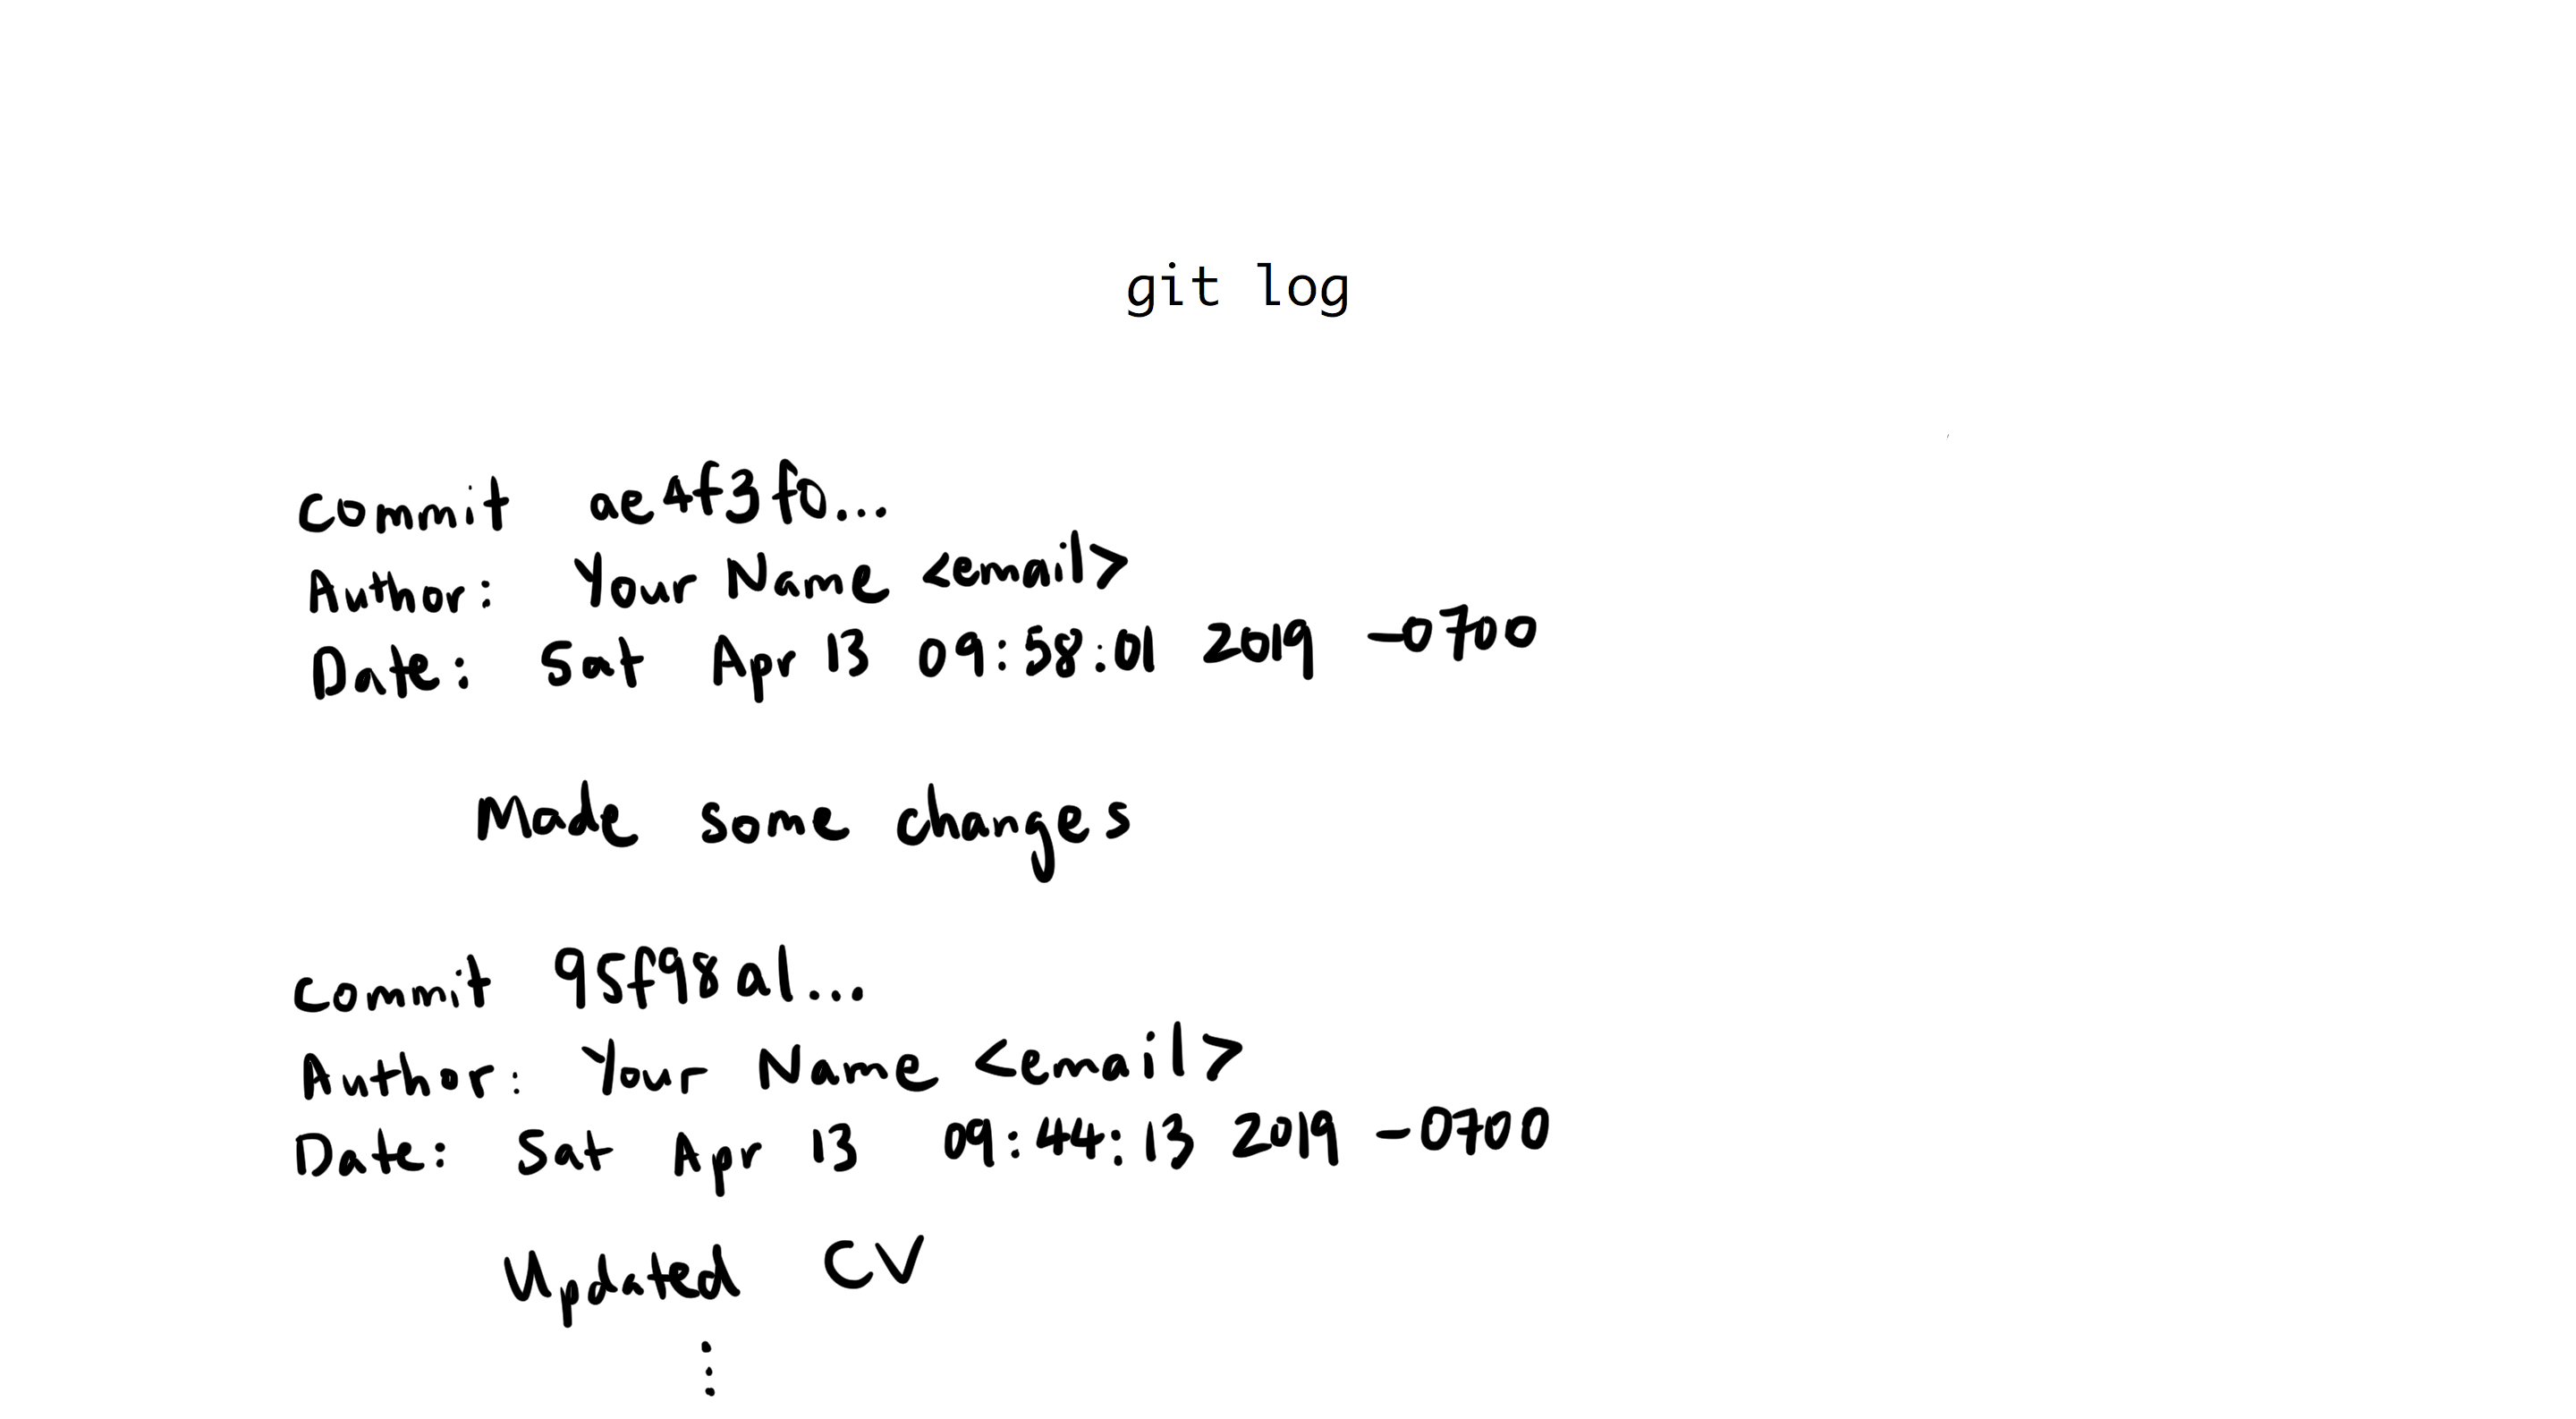 git log
commit ae4f3f0...
Author: Your Name <email>
Date: Sat Apr 13 09:58:01 2019 -0700
Made some changes
commit 95f98a1...
Author: Your Name <email>
Date: Sat Apr 13 09:44:13 2019 -0700
Updated CV
⋮